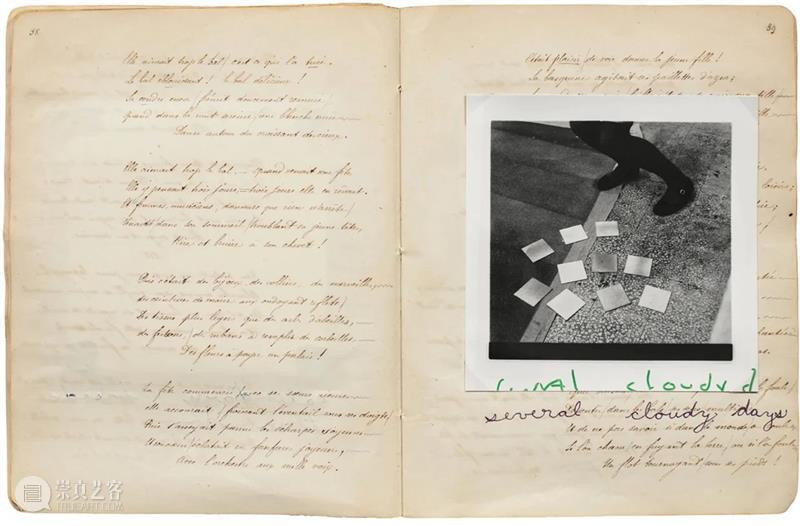 38
Elle aimait trop le bal, c'est ce qui l'a tuée.
Le bal éblouissant ! le bal délicieux !
Sa cendre encor frémit doucement remuée,
quand dans la nuit sereine, une blanche nuée
Danse autour du croissant des cieux.
Elle aimait trop le bal. — quand venait une fête
Elle y pensait trois jours, — trois jours elle en rêvait.
Et femmes, musiciens, danseurs que rien n'arrête,
Venaient dans son sommeil, troublant sa jeune tête,
Rire et bruire à son chevet !
Puis c'étaient des bijoux, des colliers, des merveilles,
des ceintures de moire aux ondoyants reflets,
Des tissus plus légers que des ailes d'abeilles, —
des festons, des rubans à remplir des corbeilles, —
Des fleurs à payer un palais !
La fête commencée, avec ses sœurs rieuses
elle accourait, froissant l'éventail sous ses doigts,
Puis s'asseyait parmi les écharpes soyeuses —
et son cœur éclatait en fanfares joyeuses, —
Avec l'orchestre aux mille voix.
39
C'était plaisir de voir danser la jeune fille !
Sa basquine agitait ses paillettes d'azur ;
cloudy d
several cloudy days
et de ne pas savoir si dans le monde
Si l'on chasse, en fuyant la terre, ou si l'on foule
Un flot tournoyant sous ses pieds !
崇真艺客
TRUEART.COM